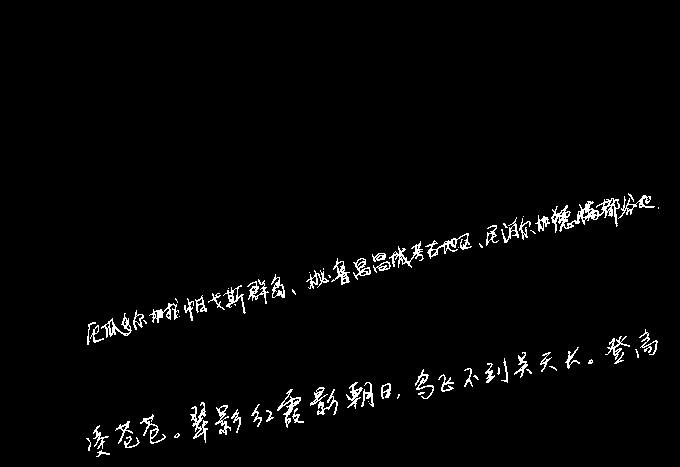 厄瓜多尔加拉帕戈斯群岛、秘鲁昌昌城考古地区、尼泊尔加德满都谷地.
凌苍苍。翠影红霞影朝日,鸟飞不到吴天长。登高